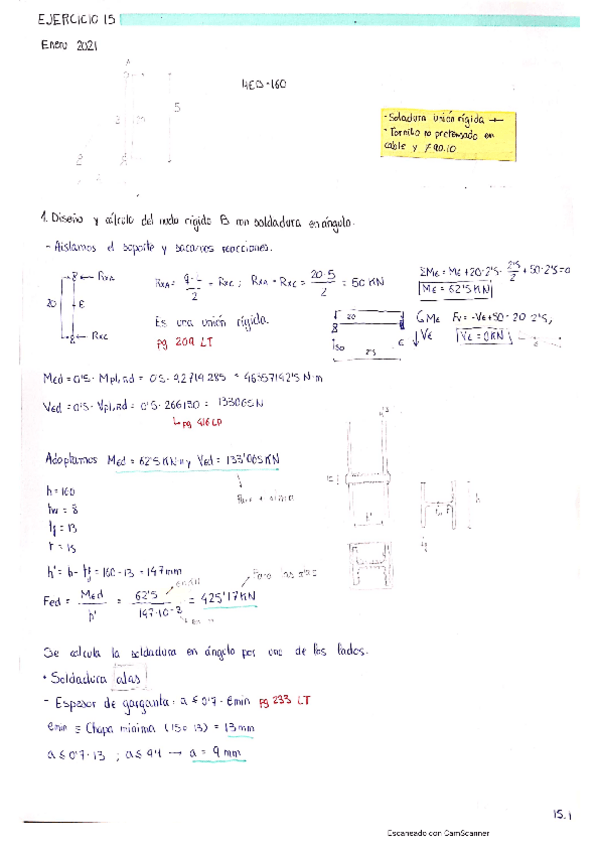 EJERCICIO 15
Enero 2021
HEB-160
A
5
B
- Soladura unión rígida
- Tornillo no pretensado en
cable y ≠ 90.10
1. Diseño y cálculo del nudo rígido B con soldadura en ángulo.
- Aislamos el soporte y sacamos reacciones.
RxA
20
E
RxC
RxA = q·L / 2 = RxC ; RxA = RxC = 20·5 / 2 = 50 KN
Es una unión rígida.
pg 209 LT
ΣME = ME + 20·2'5· 2'5/2 + 50·2'5 = 0
ME = 62'5 KN
20
50
2'5
ME
VE
Fv = -VE + 50 - 20·2'5,
VE = 0KN
Med = 0'5 · Mpl,Rd = 0'5 · 92714285 = 46357142'5 N·m
Ved = 0'5 · Vpl,Rd = 0'5 · 266130 = 133065N
pg 416 LP
Adoptamos Med = 62'5 KN m y Ved = 133'065 KN
h = 160
tw = 8
tf = 13
r = 15
h' = h - tf = 160 - 13 = 147 mm
Fed = Med / h' = 62'5 / 147·10⁻³ = 425'17 KN
Se calcula la soldadura en ángulo por uno de los lados.
• Soldadura alas
- Espesor de garganta: a ≤ 0'7 · emin pg 233 LT
emin ≡ Chapa mínima (15 o 13) = 13 mm
a ≤ 0'7·13 ; a ≤ 9'1 → a = 9 mm
15.1
Escaneado con CamScanner